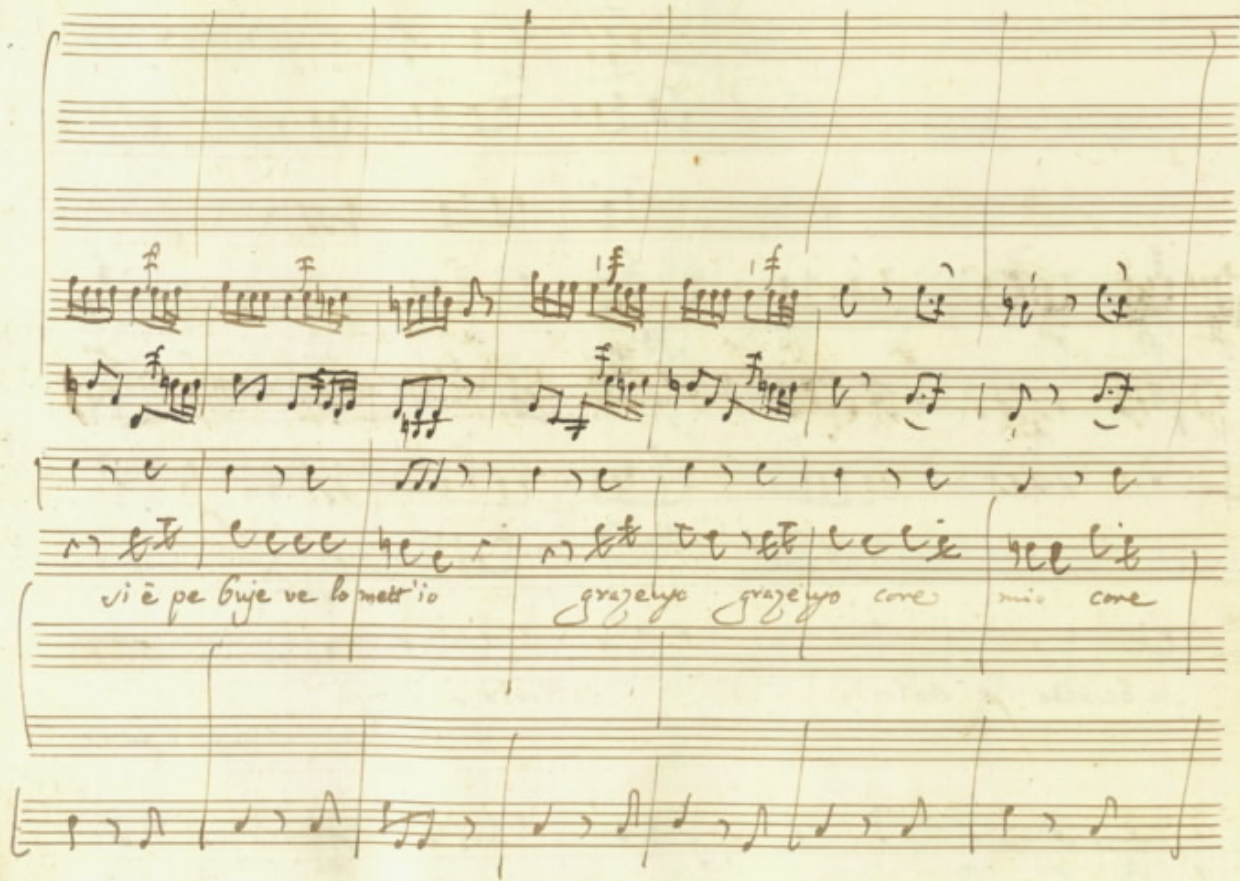 vi è pe buje ve lo mett'io grazejyo grazejyo core mio core